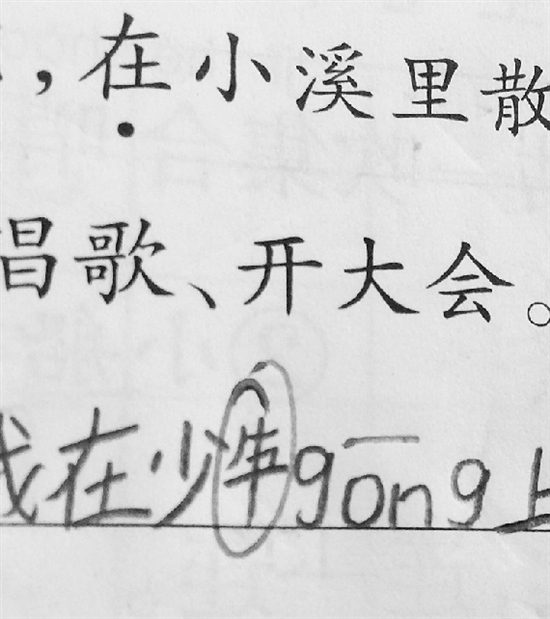 ，在小溪里散
唱歌、开大会。
我在少年gōng上